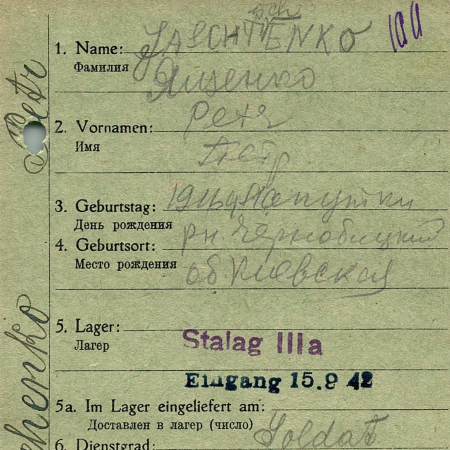 sch
1. Name: JASCHTENKO
Фамилия Ященко
2. Vornamen: Petr
Имя Петр
3. Geburtstag: 1911
День рождения
4. Geburtsort: рн. Чернобицкий
Место рождения об Киевская
5. Lager:
Лагер Stalag IIIa
Eingang 15.9 42
5a. Im Lager eingeliefert am:
Доставлен в лагер (число)
6. Dienstgrad: Soldat
Petr
henko